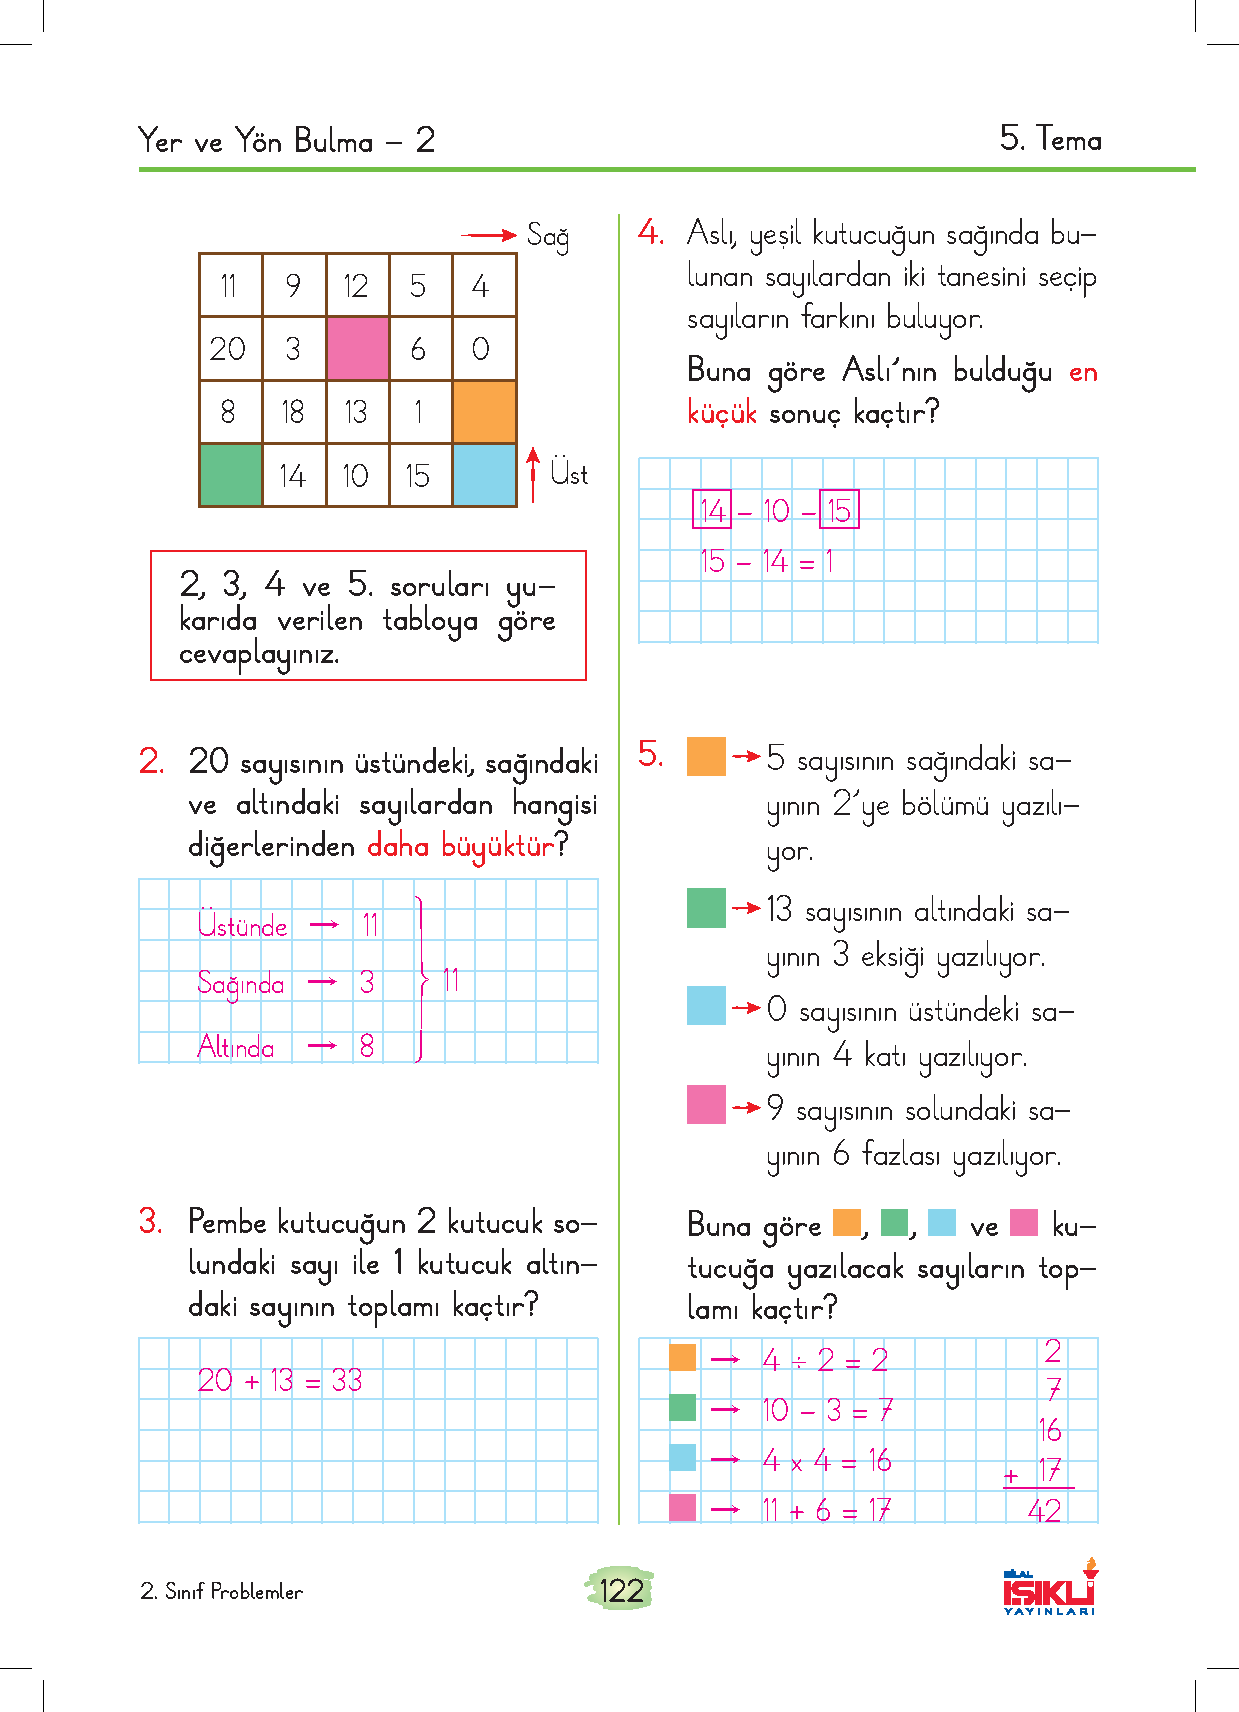 Yer ve Yön Bulma – 2
5. Tema
Sağ
11 9 12 5 4
20 3 6 0
8 18 13 1
14 10 15
Üst
2, 3, 4 ve 5. soruları yu-
karıda verilen tabloya göre
cevaplayınız.
2. 20 sayısının üstündeki, sağındaki
ve altındaki sayılardan hangisi
diğerlerinden daha büyüktür?
Üstünde → 11
Sağında → 3 } 11
Altında → 8
3. Pembe kutucuğun 2 kutucuk so-
lundaki sayı ile 1 kutucuk altın-
daki sayının toplamı kaçtır?
20 + 13 = 33
4. Aslı, yeşil kutucuğun sağında bu-
lunan sayılardan iki tanesini seçip
sayıların farkını buluyor.
Buna göre Aslı’nın bulduğu en
küçük sonuç kaçtır?
14 – 10 – 15
15 – 14 = 1
5. → 5 sayısının sağındaki sa-
yının 2’ye bölümü yazılı-
yor.
→ 13 sayısının altındaki sa-
yının 3 eksiği yazılıyor.
→ 0 sayısının üstündeki sa-
yının 4 katı yazılıyor.
→ 9 sayısının solundaki sa-
yının 6 fazlası yazılıyor.
Buna göre , , ve ku-
tucuğa yazılacak sayıların top-
lamı kaçtır?
→ 4 ÷ 2 = 2
→ 10 – 3 = 7
→ 4 x 4 = 16
→ 11 + 6 = 17
2
7
16
+ 17
42
2. Sınıf Problemler
122
BİLAL
IŞIKLI
YAYINLARI